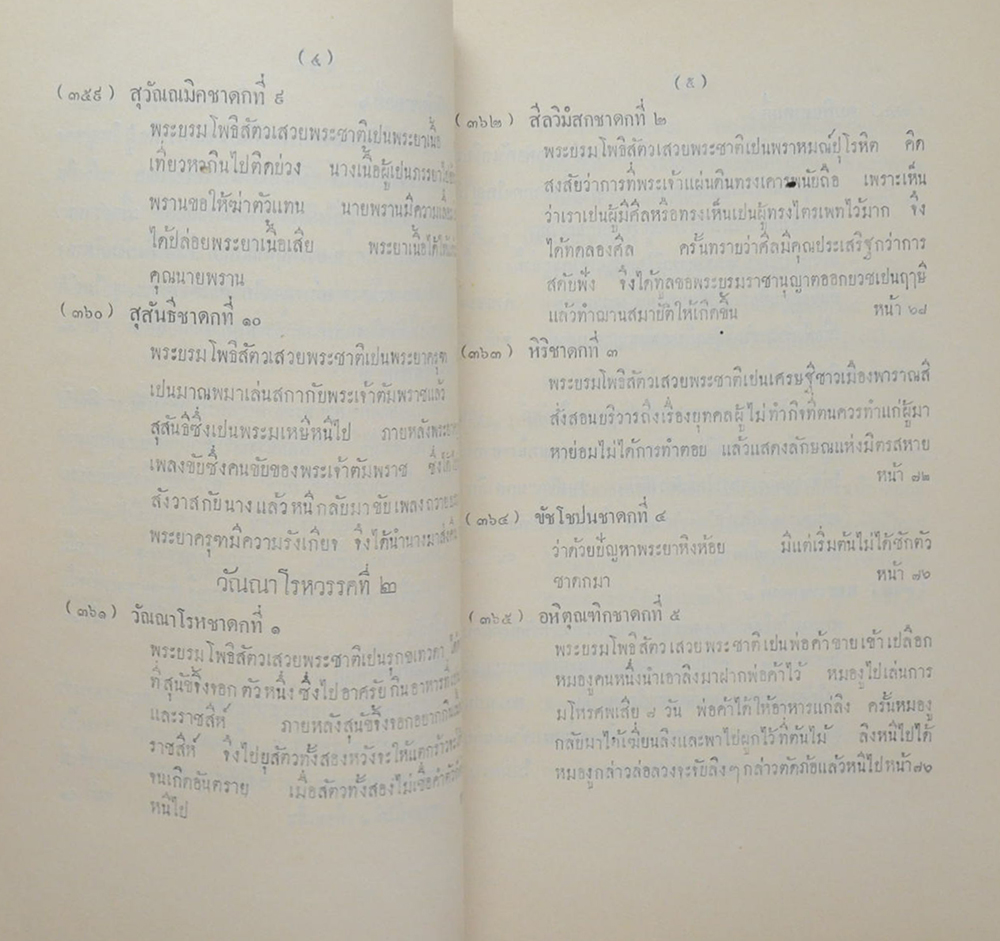 (๔)
(๓๕๙) สุวัณณมิคชาดกที่ ๙
พระบรมโพธิสัตวเสวยพระชาติเปนพระยาเนื้อ
เที่ยวหากินไปติดบ่วง นางเนื้อผู้เปนภรรยา
พรานขอให้ฆ่าตัวแทน นายพรานมีความ
ได้ปล่อยพระยาเนื้อเสีย พระยาเนื้อได้
คุณนายพราน
(๓๖๐) สุสันธีชาดกที่ ๑๐
พระบรมโพธิสัตวเสวยพระชาติเปนพระยาครุฑ
เปนมาณพมาเล่นสกากับพระเจ้าตัมพราชแล้ว
สุสันธีซึ่งเปนพระมเหษีหนีไป ภายหลัง
เพลงขับซึ่งคนขับของพระเจ้าตัมพราช
สังวาสกับนาง แล้วหนีกลับมาขับเพลงถวาย
พระยาครุฑมีความรังเกียจ จึงได้นำนางมา
วัณณาโรหวรรคที่ ๒
(๓๖๑) วัณณาโรหชาดกที่ ๑
พระบรมโพธิสัตวเสวยพระชาติเปนรุกขเทวดา
ที่สุนัขจิ้งจอกตัวหนึ่ง ซึ่งไปอาศรัยกินอาหารที่
และราชสีห์ ภายหลังสุนัขจิ้งจอกอยากกิน
ราชสีห์ จึงไปยุสัตวทั้งสองหวังจะให้แตกร้าว
จนเกิดอันตราย เมื่อสัตวทั้งสองไม่เชื่อคำ
หนีไป
(๕)
(๓๖๒) สีลวิมํสกชาดกที่ ๒
พระบรมโพธิสัตวเสวยพระชาติเปนพราหมณ์ปุโรหิต คิด
สงสัยว่าการที่พระเจ้าแผ่นดินทรงเคารพนับถือ เพราะเห็น
ว่าเราเปนผู้มีศีลหรือทรงเห็นเปนผู้ทรงไตรเพทไว้มาก จึง
ได้ทดลองศีล ครั้นทราบว่าศีลมีคุณประเสริฐกว่าการ
สดับฟัง จึงได้ทูลขอพระบรมราชานุญาตออกบวชเปนฤๅษี
แล้วทำฌานสมาบัติให้เกิดขึ้น หน้า ๖๘
(๓๖๓) หิริชาดกที่ ๓
พระบรมโพธิสัตวเสวยพระชาติเปนเศรษฐีชาวเมืองพาราณสี
สั่งสอนบริวารถึงเรื่องบุทคลผู้ไม่ทำกิจที่ตนควรทำแก่ผู้มา
หาย่อมไม่ได้การทำตอบ แล้วแสดงลักษณแห่งมิตรสหาย
หน้า ๗๒
(๓๖๔) ขัชโชปนชาดกที่ ๔
ว่าด้วยปัญหาพระยาหิงห้อย มีแต่เริ่มต้นไม่ได้ชักตัว
ชาดกมา หน้า ๗๖
(๓๖๕) อหิตุณฑิกชาดกที่ ๕
พระบรมโพธิสัตวเสวยพระชาติเปนพ่อค้าขายเข้าเปลือก
หมองูคนหนึ่งนำเอาลิงมาฝากพ่อค้าไว้ หมองูไปเล่นการ
มโหรศพเสีย ๘ วัน พ่อค้าได้ให้อาหารแก่ลิง ครั้นหมองู
กลับมาได้เฆี่ยนลิงและพาไปผูกไว้ที่ต้นไม้ ลิงหนีไปได้
หมองูกล่าวล่อลวงจะจับลิงๆ กล่าวตัดภ้อแล้วหนีไปหน้า๗๖